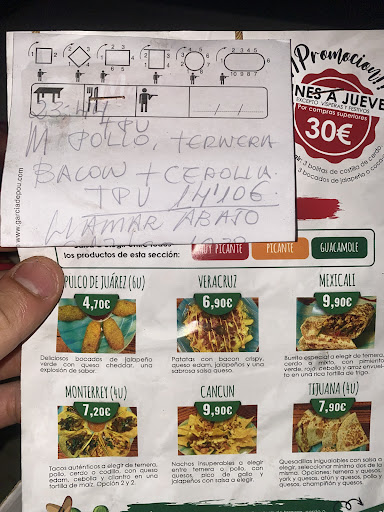 1 2
2 3
1 4
2 3 4 5
10 9 8 7
www.garciadepou.com
TPU
M POLLO, TERNERA
BACON + CEBOLLA.
TPU 14'10€
LLAMAR ABAJO
¡¡Promocion!!
NES A JUEVES
EXCEPTO VISPERAS Y FESTIVOS
Por compras superiores
30€
3 bolitas de costilla de cerdo
3 bocados de jalapeño
los productos de esta sección:
MUY PICANTE
PICANTE
GUACAMOLE
PULCO DE JUÁREZ (6U)
4,70€
Deliciosos bocados de jalapeño
verde con queso cheddar, una
explosión de sabor.
VERACRUZ
6,90€
Patatas con bacon crispy,
queso edam, jalapeños y una
sabrosa salsa queso.
MEXICALI
9,90€
Burrito especial a elegir de ternera,
cerdo a mixto, con pimiento
verde, rojo, cebolla y arroz envuel-
to en una rica tortilla de trigo.
MONTERREY (4U)
7,20€
Tacos auténticos a elegir de ternera,
pollo, cerdo o codillo, con queso
edam, cebolla y cilantro en una
tortilla de maiz. Opción 2 y 2.
CANCUN
9,90€
Nachos insuperables a elegir
entre ternera o pollo, con
quesos, pico de gallo y
jalapeños con salsa a elegir.
TIJUANA (4U)
7,90€
Quesadillas inigualables con salsa a
elegir, seleccionar mínimo dos de la
misma. Opciones: ternera y quesos,
york y quesos, atún y quesos, pollo y
quesos, champiñón y quesos.